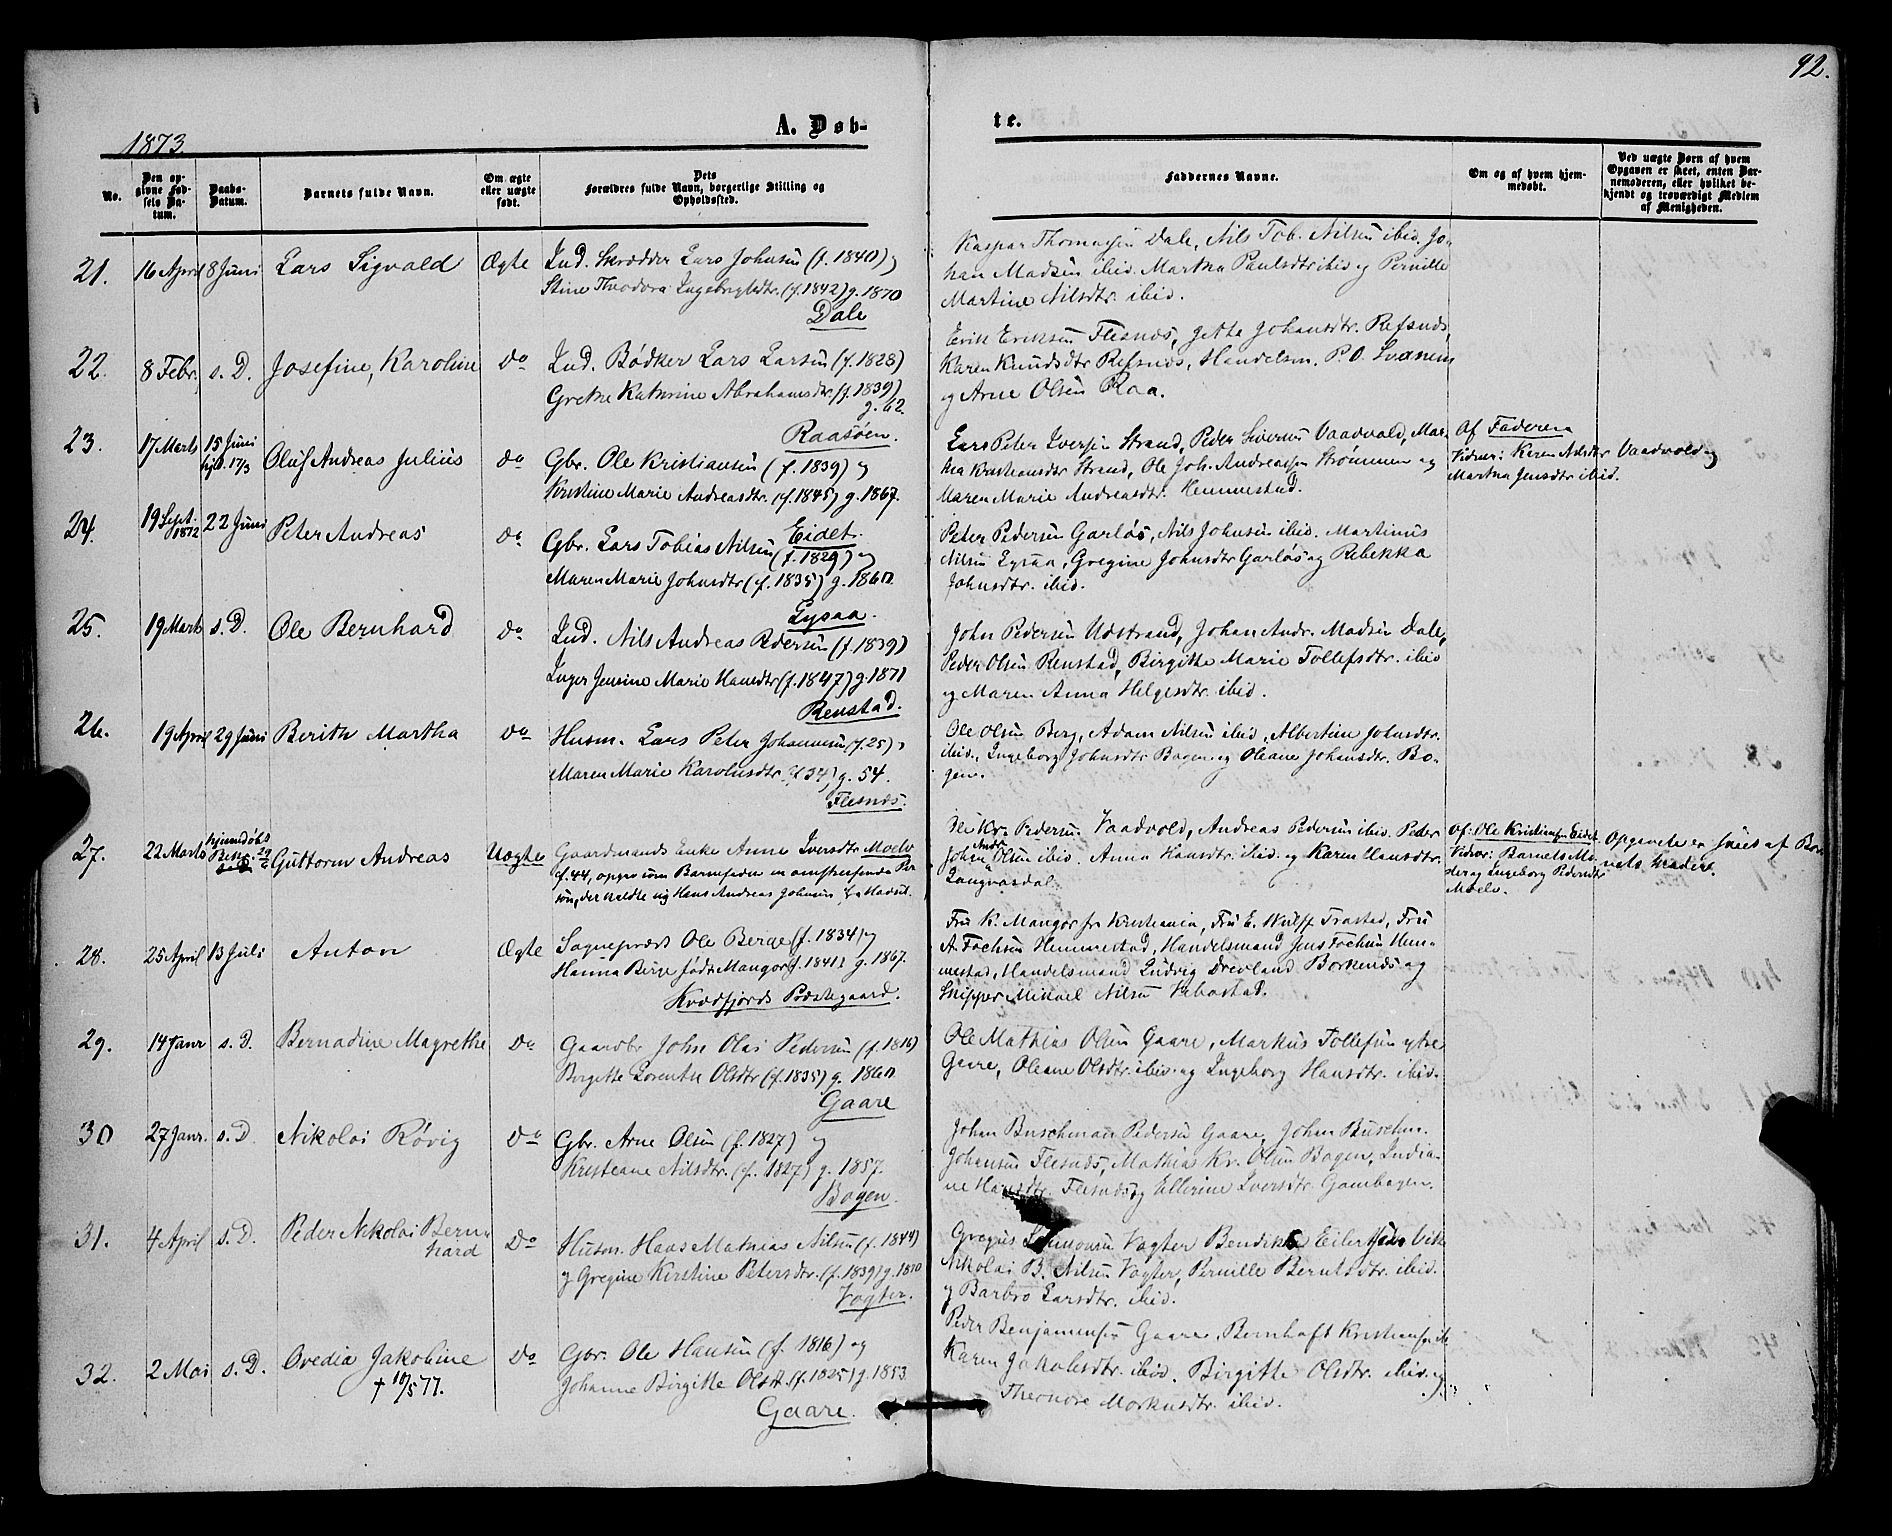 92.
1873.
A. Døb-
te.
No.
Den op-
givne Fød-
sels Da-
tum.
Daabs-
Datum.
Barnets fulde Navn.
Om ægte
eller uægte
født.
Dets
Forældres fulde Navn, borgerlige Stilling og
Opholdssted.
Faddernes Navne.
Om og af hvem hjem-
medøbt.
Ved uægte Børn af hvem
Opgaven er skeet, enten Bar-
nemoderen, eller hvilket be-
kjendt og troværdigt Medlem
af Menigheden.
21. 16 April 8 Juni Lars Sigvald Ægte Ind. Skrædder Lars Johnsen (f. 1840) og
Stine Theodora Ingebrigtsdtr. (f. 1842) g. 1870
Dale
Kaspar Thomassen Dale, Nils Tob. Nilsen ibid. Jo-
han Madsen ibid. Martha Paulsdtr ibid og Pernille
Martine Nilsdtr. ibid.
22. 8 Febr. s. D. Josefine Karoline do Ind. Bødker Lars Larsen (f. 1828)
Grethe Kathrine Abrahamsdtr. (f. 1839)
g. 62.
Raasøen.
Erik Eriksen Flesnæs, Jette Johansdtr. Refsnæs,
Karen Knudsdtr Refsnæs, Handelsm. P. O.
og Arne Olsen Raa.
23. 17 Marts 15 Juni
hjd. 17/3 Oluf Andreas Julius do Gbr. Ole Kristiansen (f. 1839) og
Kristine Marie Andreasdtr. (f. 1845) g. 1867.
Eidet.
Lars Peter Iversen Strand, Peder Siversen Vaadvold, Mar-
tha Kristiansdtr Strand, Ole Joh. Andreassen Strømmen og
Maren Marie Andreasdtr. Hemmestad.
Af Faderen
Vidner: Karen Vaadvold og
Martha Jensdtr ibid.
24. 19 Sept.
1872 22 Juni Peter Andreas do Gbr. Lars Tobias Nilsen
(f. 1829) og
Maren Marie Johnsdtr (f. 1835) g. 1860.
Eysaa.
Peter Pedersen Garløs, Nils Johnsen ibid. Martinus
Nilsen Eysaa, Gregine Johnsdtr Garløs og Rebekka
Johnsdtr. ibid.
25. 19 Marts s. D. Ole Bernhard do Ind. Nils Andreas Pedersen (f. 1839)
Inger Jensine Marie Hansdtr (f. 1847) g. 1871
Renstad.
John Pedersen Udstrand, Johan Andr. Madsen Dale,
Peder Olsen Renstad, Birgitte Marie Tollefsdtr. ibid
og Maren Anna Helgesdtr. ibid.
26. 19 April 29 Juni Berith Martha do Husm. Lars Peter Johannesen (f. 25) og
Maren Marie Karolusdtr. (f. 34) g. 54.
Flesnæs.
Ole Olsen Berg, Adam Nilsen ibid, Albertine Johnsdtr.
ibid., Ingeborg Johnsdtr Bogen og Oleane Johansdtr. Bo-
gen.
27. 22 Marts hjemdøbt
Bekr. 29/6 Guttorm Andreas Uægte Gaardmands Enke Anne Iversdtr. Moelv
f. 44, opgav som Barnefader en omstreifende Per-
son, der meldte sig Hans Andreas Johnsen
Ole Kr. Pedersen Vaadvold, Andreas Pedersen ibid. Peder
Johan Andr. Olsen ibid. Anna Hansdtr. ibid. og Karen Hansdtr.
Langvasdal.
Af: Ole Kristiansen Eidet.
Vidner: Barnets Mo-
der og Ingeborg Pedersdtr
Moelv.
Opgavete er skeet af Bar-
nets Moder.
28. 25 April 13 Juli Anton Ægte Sognepræst Ole Berge (f. 1834) og
Hanna Berge født Mangor (f. 1841) g. 1867.
Kvædfjords Præstegaard.
Fru K. Mangor fr Kristiania, Fru E. Wulff Trastad, Fru
A. Fochsen Hemmestad, Handelsmand Jens Fochsen Hem-
mestad, Handelsmand Ludvig Drevland Borkenæs og
Skipper Mikael Nilsen Vebostad.
29. 14 Janr s. D. Bernadine Magrethe do Gaardbr John Olai Pedersen (f. 1816)
Birgitte Lorentse Olsdtr (f. 1835) g. 1860
Gaare
Ole Mathias Olsen Gaare, Markus Tollefsen ytre
Gaare, Oleane Olsdtr. ibid. og Ingeborg Hansdtr. ibid.
30 27 Janr. s. D. Nikolai Røvig do Gbr. Arne Olsen (f. 1827) og
Kristeane Nilsdtr. (f. 1827) g. 1857.
Bogen.
Johan Buschman Pedersen Gaare, Johan Buschm.
Johansen Flesnæs, Mathias Kr. Olsen Bogen, India-
ne Hansdtr. Flesnæs og Ellerine Iversdtr. Gambogen.
31. 4 April s. D. Peder Nikolai Bern-
hard do Husm. Hans Mathias Nilsen (f. 1844)
og Gregine Kirstine Petersdtr. (f. 1839) g. 1870
Vogter.
Gregus Simonsen Vogter Bendik Eilertsen Vik
Nikolai B. Nilsen Vogter, Pernille Berntsdtr. ibid.
og Barbro Larsdtr. ibid.
32. 2 Mai s. D. Ovedia Jakobine
† 10/5 77. do Gbr. Ole Hansen (f. 1816) og
Johanne Birgitte Olsd. (f. 1825) g. 1853
Gaare.
Peder Benjaminsen Gaare, Bernhoft Kristiansen ib.
Karen Jakobsdtr. ibid. Birgitte Olsdtr. ibid. og
Theonore Morkusdtr. ibid.